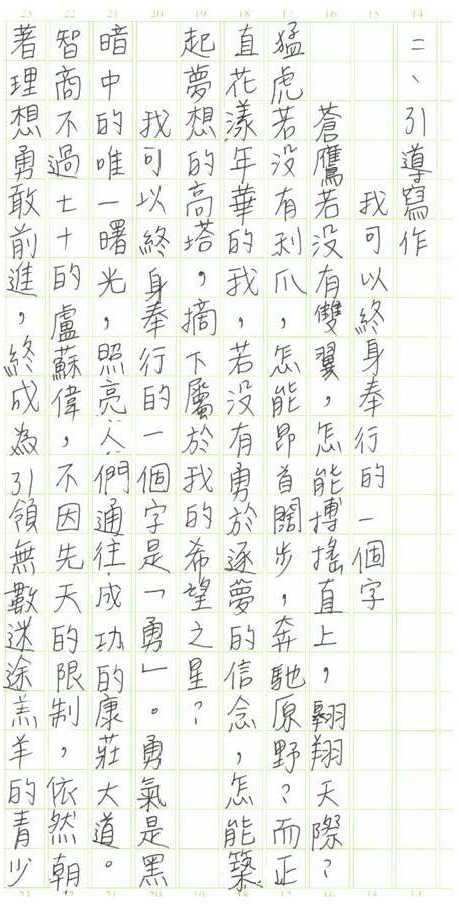 14
二、引導寫作
15
我可以終身奉行的一個字
16
蒼鷹若沒有雙翼,怎能摶搖直上,翱翔天際?
17
猛虎若沒有利爪,怎能昂首闊步,奔馳原野?而正
18
直花漾年華的我,若沒有勇於逐夢的信念,怎能築
19
起夢想的高塔,摘下屬於我的希望之星?
20
我可以終身奉行的一個字是「勇」。勇氣是黑
21
暗中的唯一曙光,照亮人們通往成功的康莊大道。
22
智商不過七十的盧蘇偉,不因先天的限制,依然朝
23
著理想勇敢前進,終成為引領無數迷途羔羊的青少